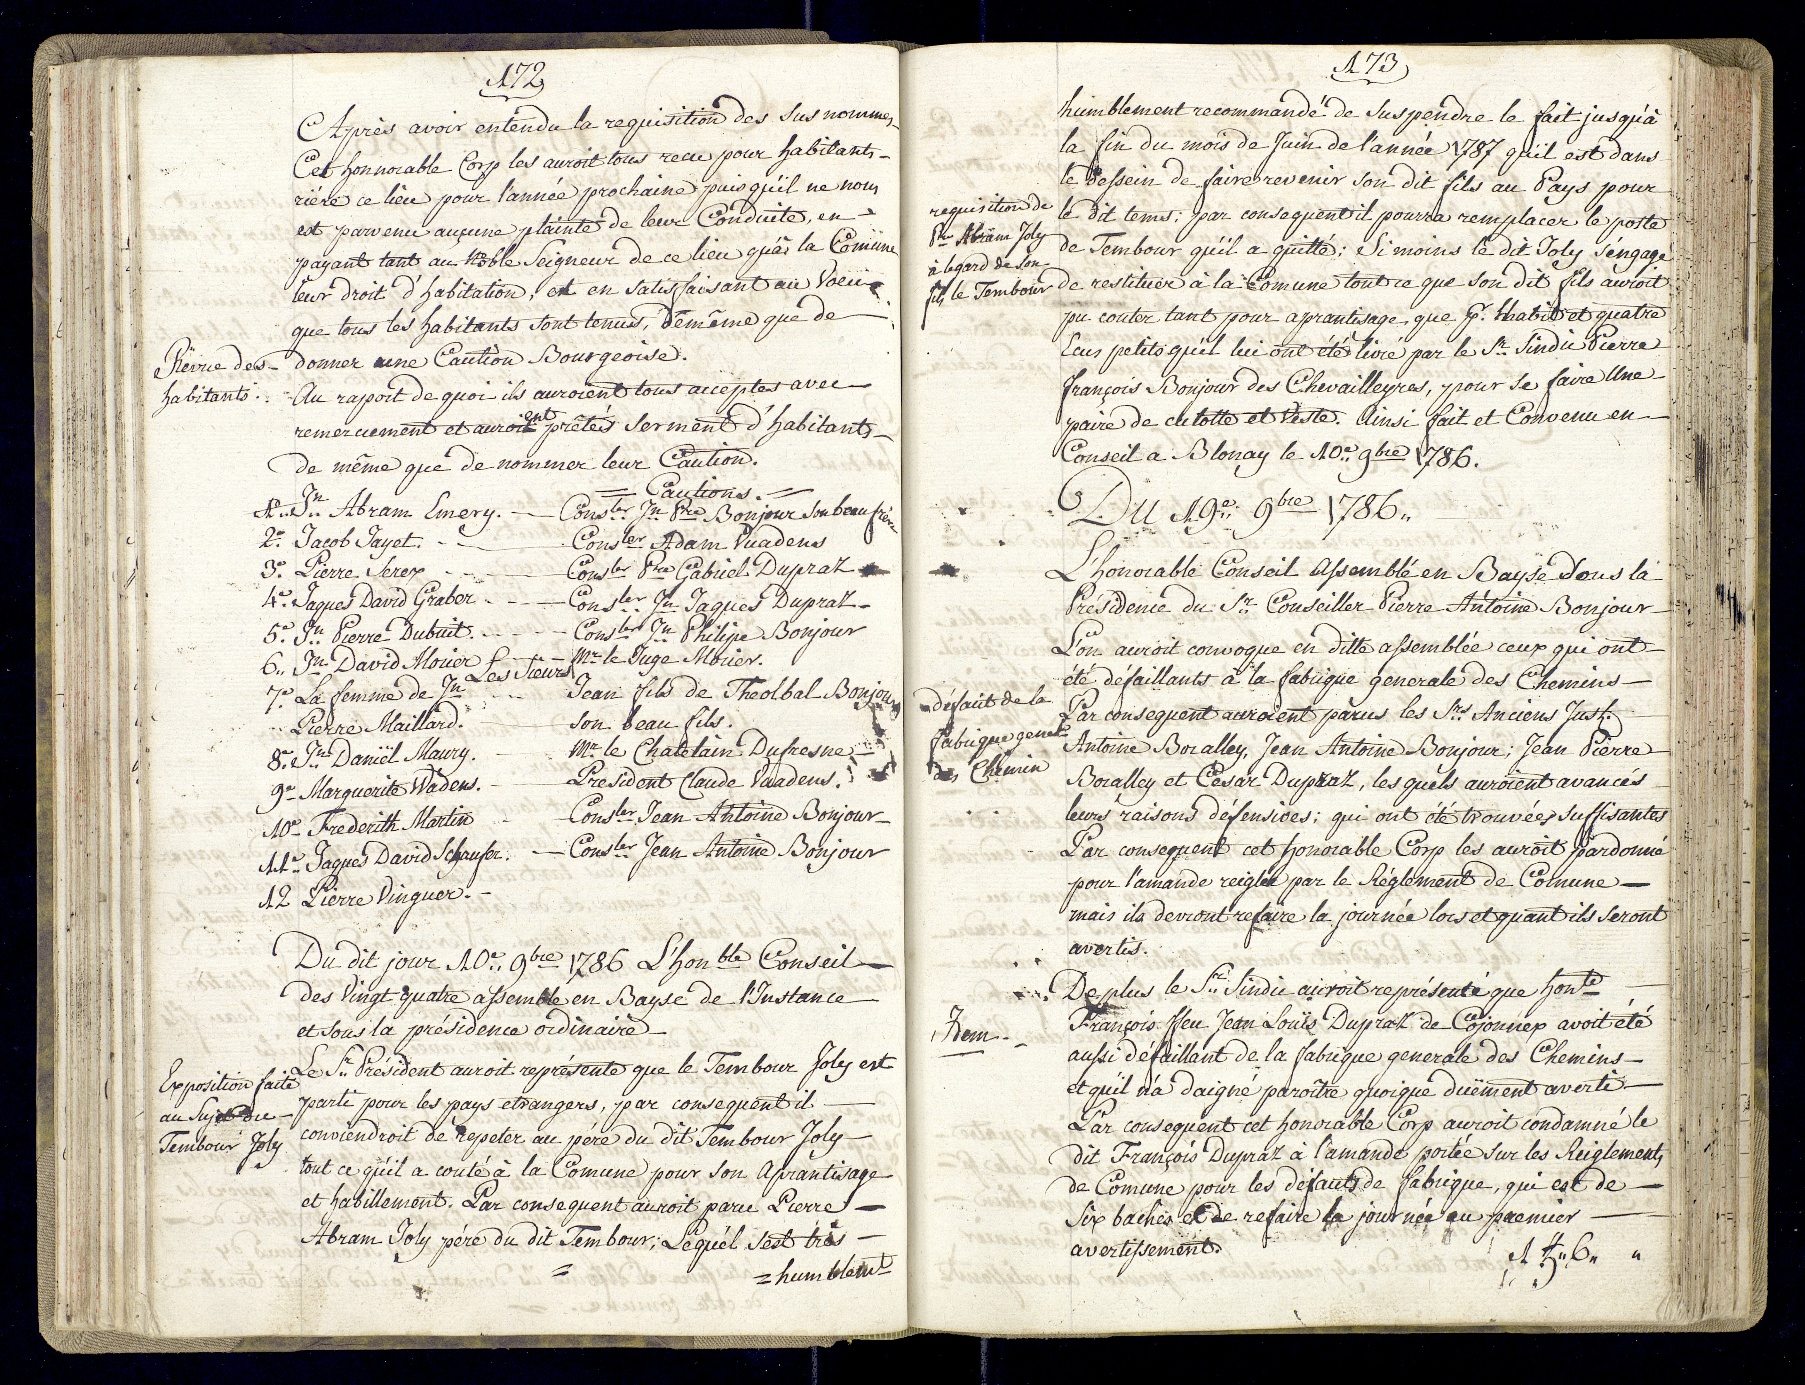 172
Après avoir entendu la requisition des sus nommes,
Cet honnorable Corp les auroit tous recu pour habitants
riére ce lieu pour l'année prochaine puis qu'il ne nous
est parvenu auçune plainte de leur Conduite, en
payant tant au Noble Seigneur de ce lieu qu'à la Comüne
leur droit d'habitation, et en satisfaisant au Voeux
que tous les habitants sont tenus, dememe que de
Rëvüe des donner une Caution Bourgeoise.
habitants. Au raport de quoi ils auroient tous acceptes avec
remerciement et auroient prêtés serment d'habitants
De même que de nommer leur Caution.
= Cautions. =
1e.. Jn Abram Emery. — Conster Jn Pre Bonjour son beau frére
2e. Jacob Jayet. — Conster Adam Vuadens
3e. Pierre Serex — Conster Pre Gabriel Dupraz
4e. Jaques David Graber — Conster Jn Jaques Dupraz
5e. Jn Pierre Dubuit. — Conster Jn Philipe Bonjour
6.. Jn David Monier — Mr le Juge Monier.
Les Sieurs
7e. La femme de Jn — Jean fils de Theolbal Bonjour
Pierre Maillard. — son beau fils.
8e. Jn Daniël Maury. — Mr le Chatelain Dufresne
9e Marguerite Wadens. — President Claude Vuadens.
10e Frederith Martin — Conster Jean Antoine Bonjour
11e Jaques David Schaufer. — Conster Jean Antoine Bonjour
12 Pierre Vinguer.
Du dit jour 10e.. 9bre 1786 L'honble Conseil
des Vingt quatre assemble en Bayse de l'Instance
et sous la présidence ordinaire
Exposition faite
au Sujet du
Tembour Joly
Le Sr. Président auroit représente que le Tembour Joly est
parti pour les pays etrangers, par consequent il
conviendroit de repeter au pére du dit Tembour Joly
tout ce qu'il a couté à la Comune pour son Aprantisage
et habillement. Par consequent auroit paru Pierre
Abram Joly pére du dit Tembour; Lequél s'est très
= humblemt
173
humblement recommandé de suspendre le fait jusqu'à
la fin du mois de Juin de l'année 1787 qu'il est dans
le dessein de faire revenir son dit fils au Pays pour
requisition de
Pre Abram Joly
à legard de son
fils le Tembour
le dit tems; par consequent il pourra remplacer le poste
de Tembour qu'il a quitté; Si moins le dit Joly s'engage
de restituer à la Comune tout ce que son dit fils auroit
pu couter tant pour aprantisage, que pr. habit et quatre
Ecus petits qu'il lui ont été livré par le Sr. Sindic Pierre
françois Bonjour des Chevailleyres, pour se faire Une
paire de culotte et Veste. Ainsi fait et Convenu en
Conseil a Blonay le 10e.. 9bre 1786.
Du 19e.. 9bre 1786..
L'honorable Conseil Assemblé en Bayse Sous la
Présidence du Sr. Conseiller Pierre Antoine Bonjour
L'on auroit convoque en ditte assemblée ceux qui ont
été défaillants à la fabrique generale des Chemins
défaut de la
fabrique genel
des Chemin
Par consequent auroient parus les Srs Anciens Just.
Antoine Boralley, Jean Antoine Bonjour; Jean Pierre
Boralley et César Dupraz, les quels auroient avancés
leurs raisons défensives; qui ont été trouvées suffisantes
Par consequent cet honorable Corp les auroit pardonné
pour l'amande reiglée par le Réglement de Comune
mais ils devront refaire la journée lors et quant ils seront
avertis.
Idem.
De plus le Sr. Sindic auroit représenté que honle
François ffeu Jean Louïs Dupraz de Cojonnex avoit été
aussi défaillant de la fabrique generale des Chemins
et qu'il n'a daigné paroitre quoique duëment averti
Par consequent cet honorable Corp auroit condamné le
dit François Dupraz à l'amande portée sur les Reiglements
de Comune pour les défauts de fabrique, qui est de
Six baches et de refaire la journée au premier
avertissement.
1 f.. 6.. "